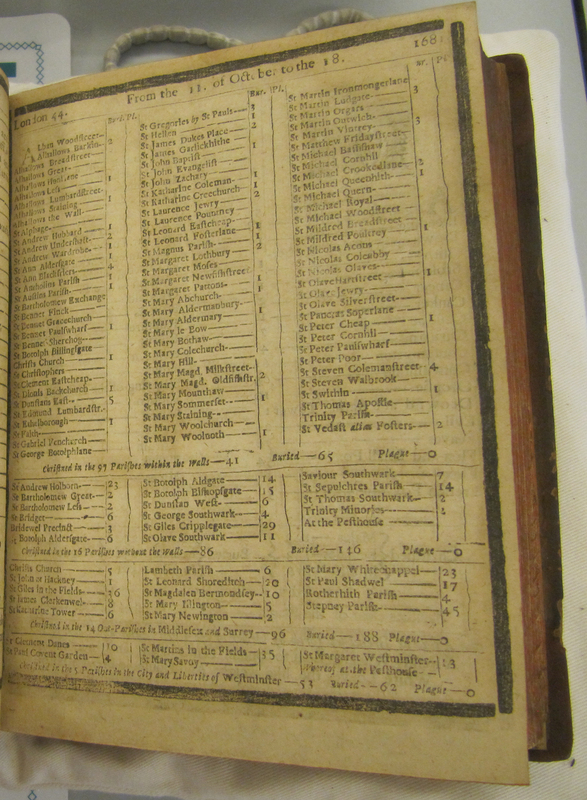 London 44. From the 11. of October to the 18. 168
Bur. Pl.
Alban Woodstreet
Alhallows Barkin 2
Alhallows Breadstreet
Alhallows Great 1
Alhallows Honilane
Alhallows Less
Alhallows Lumbardstreet
Alhallows Staining 1
Alhallows the Wall
St Alphage
St Andrew Hubbard 1
St Andrew Undershaft 2
St Andrew Wardrobe 1
St Ann Aldersgate
St Ann Blackfriers 4
St Antholins Parish 1
St Austins Parish 1
St Bartholomew Exchange
St Bennet Finck
St Bennet Gracechurch
St Bennet Paulswharf 1
St Bennet Sherehog
St Botolph Billingsgate
Christs Church 1
St Christophers
St Clement Eastcheap
St Dionis Backchurch 1
St Dunstan East 5
St Edmund Lumbardstr.
St Ethelborough 1
St Faith
St Gabriel Fenchurch
St George Botolphlane
Bur. Pl.
St Gregories by St Pauls 3
St Hellen 1
St James Dukes Place 2
St James Garlickhithe
St John Baptist 1
St John Evangelist
St John Zachary 1
St Katharine Coleman 1
St Katharine Creechurch 2
St Laurence Jewry
St Laurence Pountney
St Leonard Eastcheap 1
St Leonard Fosterlane 1
St Magnus Parish 2
St Margaret Lothbury
St Margaret Moses
St Margaret Newfishstreet 1
St Margaret Pattons 1
St Mary Abchurch
St Mary Aldermanbury 1
St Mary Aldermary
St Mary le Bow
St Mary Bothaw
St Mary Colechurch
St Mary Hill
St Mary Magd. Milkstreet
St Mary Magd. Oldfishstr. 2
St Mary Mounthaw
St Mary Sommerset 1
St Mary Staining
St Mary Woolchurch
St Mary Woolnoth 1
Bur. Pl.
St Martin Ironmongerlane
St Martin Ludgate 3
St Martin Orgars
St Martin Outwich 3
St Martin Vintrey
St Matthew Fridaystreet
St Michael Bassishaw
St Michael Cornhill
St Michael Crookedlane 2
St Michael Queenhith 1
St Michael Quern
St Michael Royal
St Michael Woodstreet
St Mildred Breadstreet
St Mildred Poultrey 1
St Nicolas Acons
St Nicolas Coleabby
St Nicolas Olaves
St Olave Hartstreet 1
St Olave Jewry
St Olave Silverstreet
St Pancras Soperlane
St Peter Cheap 1
St Peter Cornhil
St Peter Paulswharf
St Peter Poor
St Steven Colemanstreet 4
St Steven Walbrook
St Swithin 1
St Thomas Apostle
Trinity Parish
St Vedast alias Fosters 2
Christned in the 97 Parishes within the Walls 41 Buried 65 Plague 0
St Andrew Holborn 23
St Bartholomew Great 2
St Bartholomew Less 2
St Bridget 6
Bridewel Precinct 3
St Botolph Aldersgate 6
St Botolph Aldgate 14
St Botolph Bishopsgate 15
St Dunstan West 6
St George Southwark 4
St Giles Cripplegate 29
St Olave Southwark 11
Saviour Southwark 7
St Sepulchres Parish 14
St Thomas Southwark 2
Trinity Minories
At the Pesthouse
Christned in the 16 Parishes without the Walls 86 Buried 146 Plague 0
Christs Church 5
St John at Hackney 1
St Giles in the Fields 36
St James Clerkenwel 8
St Katharine Tower 6
Lambeth Parish 6
St Leonard Shoreditch 20
St Magdalen Bermondsey 10
St Mary Islington 5
St Mary Newington 2
St Mary Whitechappel 23
St Paul Shadwel 17
Rotherhith Parish 4
Stepney Parish 45
Christned in the 14 Out-Parishes in Middlesex and Surrey 96 Buried 188 Plague 0
St Clement Danes 10
St Paul Covent Garden 4
St Martins in the Fields 35
St Mary Savoy
St Margaret Westminster 13
Whereof at the Pesthouse
Christned in the 5 Parishes in the City and Liberties of Westminster 53 Buried 62 Plague 0